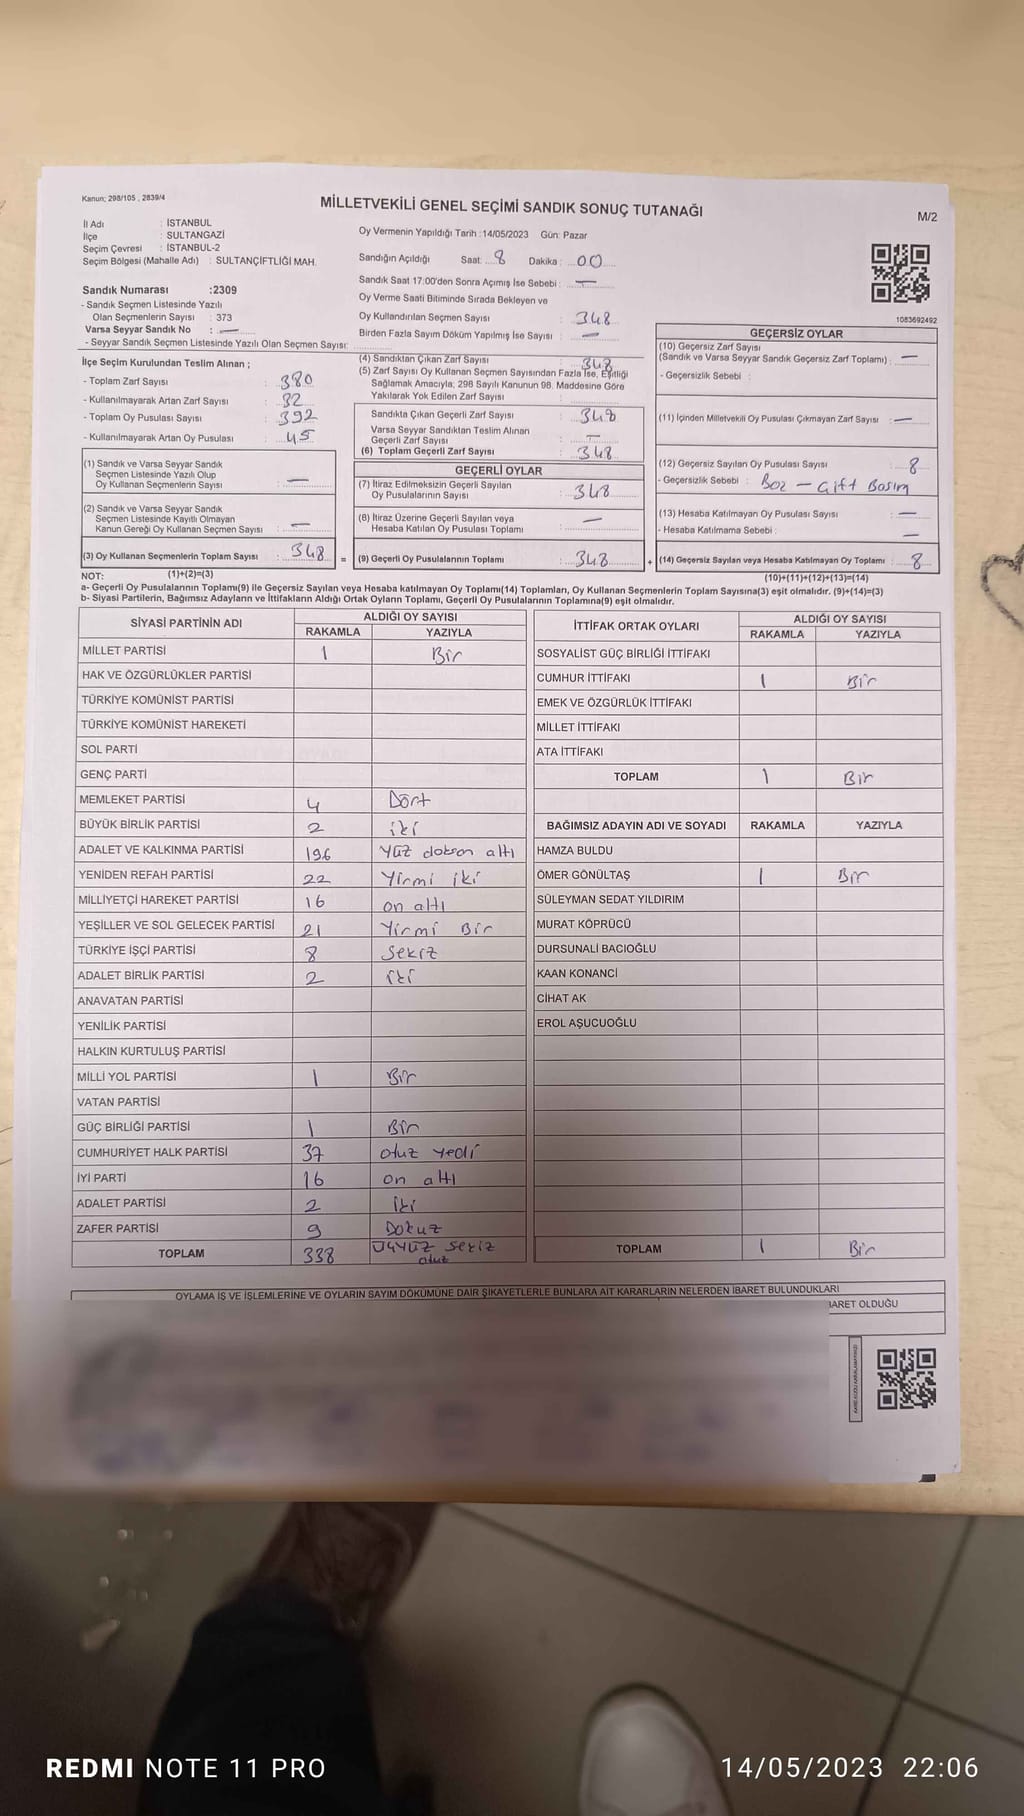 Kanun; 298/105 , 2839/4
MİLLETVEKİLİ GENEL SEÇİMİ SANDIK SONUÇ TUTANAĞI
M/2
İl Adı : İSTANBUL
İlçe : SULTANGAZİ
Seçim Çevresi : İSTANBUL-2
Seçim Bölgesi (Mahalle Adı) : SULTANÇİFTLİĞİ MAH.
Sandık Numarası :2309
- Sandık Seçmen Listesinde Yazılı
Olan Seçmenlerin Sayısı : 373
Varsa Seyyar Sandık No : —
- Seyyar Sandık Seçmen Listesinde Yazılı Olan Seçmen Sayısı:
İlçe Seçim Kurulundan Teslim Alınan ;
- Toplam Zarf Sayısı : 380
- Kullanılmayarak Artan Zarf Sayısı : 32
- Toplam Oy Pusulası Sayısı : 392
- Kullanılmayarak Artan Oy Pusulası : 45
(1) Sandık ve Varsa Seyyar Sandık
Seçmen Listesinde Yazılı Olup
Oy Kullanan Seçmenlerin Sayısı : —
(2) Sandık ve Varsa Seyyar Sandık
Seçmen Listesinde Kayıtlı Olmayan
Kanun Gereği Oy Kullanan Seçmen Sayısı : —
(3) Oy Kullanan Seçmenlerin Toplam Sayısı : 348 =
(1)+(2)=(3)
Oy Vermenin Yapıldığı Tarih :14/05/2023 Gün: Pazar
Sandığın Açıldığı Saat: 8 Dakika : 00
Sandık Saat 17:00'den Sonra Açımış İse Sebebi : —
Oy Verme Saati Bitiminde Sırada Bekleyen ve
Oy Kullandırılan Seçmen Sayısı : 348
Birden Fazla Sayım Döküm Yapılmış İse Sayısı : —
(4) Sandıktan Çıkan Zarf Sayısı : 348
(5) Zarf Sayısı Oy Kullanan Seçmen Sayısından Fazla İse, Eşitliği
Sağlamak Amacıyla; 298 Sayılı Kanunun 98. Maddesine Göre
Yakılarak Yok Edilen Zarf Sayısı :
Sandıkta Çıkan Geçerli Zarf Sayısı : 348
Varsa Seyyar Sandıktan Teslim Alınan
Geçerli Zarf Sayısı : —
(6) Toplam Geçerli Zarf Sayısı : 348
GEÇERLİ OYLAR
(7) İtiraz Edilmeksizin Geçerli Sayılan
Oy Pusulalarının Sayısı : 348
(8) İtiraz Üzerine Geçerli Sayılan veya
Hesaba Katılan Oy Pusulası Toplamı : —
(9) Geçerli Oy Pusulalarının Toplamı : 348 +
1083692492
GEÇERSİZ OYLAR
(10) Geçersiz Zarf Sayısı
(Sandık ve Varsa Seyyar Sandık Geçersiz Zarf Toplamı) : —
- Geçersizlik Sebebi :
(11) İçinden Milletvekili Oy Pusulası Çıkmayan Zarf Sayısı : —
(12) Geçersiz Sayılan Oy Pusulası Sayısı : 8
- Geçersizlik Sebebi : Boz — Çift Basım
(13) Hesaba Katılmayan Oy Pusulası Sayısı : —
- Hesaba Katılmama Sebebi : —
(14) Geçersiz Sayılan veya Hesaba Katılmayan Oy Toplamı : 8
(10)+(11)+(12)+(13)=(14)
NOT:
a- Geçerli Oy Pusulalarının Toplamı(9) ile Geçersiz Sayılan veya Hesaba katılmayan Oy Toplamı(14) Toplamları, Oy Kullanan Seçmenlerin Toplam Sayısına(3) eşit olmalıdır. (9)+(14)=(3)
b- Siyasi Partilerin, Bağımsız Adayların ve İttifakların Aldığı Ortak Oyların Toplamı, Geçerli Oy Pusulalarının Toplamına(9) eşit olmalıdır.
SİYASİ PARTİNİN ADI ALDIĞI OY SAYISI
RAKAMLA YAZIYLA
MİLLET PARTİSİ 1 Bir
HAK VE ÖZGÜRLÜKLER PARTİSİ
TÜRKİYE KOMÜNİST PARTİSİ
TÜRKİYE KOMÜNİST HAREKETİ
SOL PARTİ
GENÇ PARTİ
MEMLEKET PARTİSİ 4 Dört
BÜYÜK BİRLİK PARTİSİ 2 iki
ADALET VE KALKINMA PARTİSİ 196 Yüz dokson altı
YENİDEN REFAH PARTİSİ 22 Yirmi iki
MİLLİYETÇİ HAREKET PARTİSİ 16 on altı
YEŞİLLER VE SOL GELECEK PARTİSİ 21 Yirmi Bir
TÜRKİYE İŞÇİ PARTİSİ 8 Sekiz
ADALET BİRLİK PARTİSİ 2 iki
ANAVATAN PARTİSİ
YENİLİK PARTİSİ
HALKIN KURTULUŞ PARTİSİ
MİLLİ YOL PARTİSİ 1 Bir
VATAN PARTİSİ
GÜÇ BİRLİĞİ PARTİSİ 1 Bir
CUMHURİYET HALK PARTİSİ 37 otuz yedi
İYİ PARTİ 16 on altı
ADALET PARTİSİ 2 iki
ZAFER PARTİSİ 9 Dokuz
TOPLAM 338 Üçyüz sekiz
otuz
İTTİFAK ORTAK OYLARI ALDIĞI OY SAYISI
RAKAMLA YAZIYLA
SOSYALİST GÜÇ BİRLİĞİ İTTİFAKI
CUMHUR İTTİFAKI 1 Bir
EMEK VE ÖZGÜRLÜK İTTİFAKI
MİLLET İTTİFAKI
ATA İTTİFAKI
TOPLAM 1 Bir
BAĞIMSIZ ADAYIN ADI VE SOYADI RAKAMLA YAZIYLA
HAMZA BULDU
ÖMER GÖNÜLTAŞ 1 Bir
SÜLEYMAN SEDAT YILDIRIM
MURAT KÖPRÜCÜ
DURSUNALİ BACIOĞLU
KAAN KONANCİ
CİHAT AK
EROL AŞUCUOĞLU
TOPLAM 1 Bir
OYLAMA İŞ VE İŞLEMLERİNE VE OYLARIN SAYIM DÖKÜMÜNE DAİR ŞİKAYETLERLE BUNLARA AİT KARARLARIN NELERDEN İBARET BULUNDUKLARI
BARET OLDUĞU
REDMI NOTE 11 PRO
14/05/2023 22:06